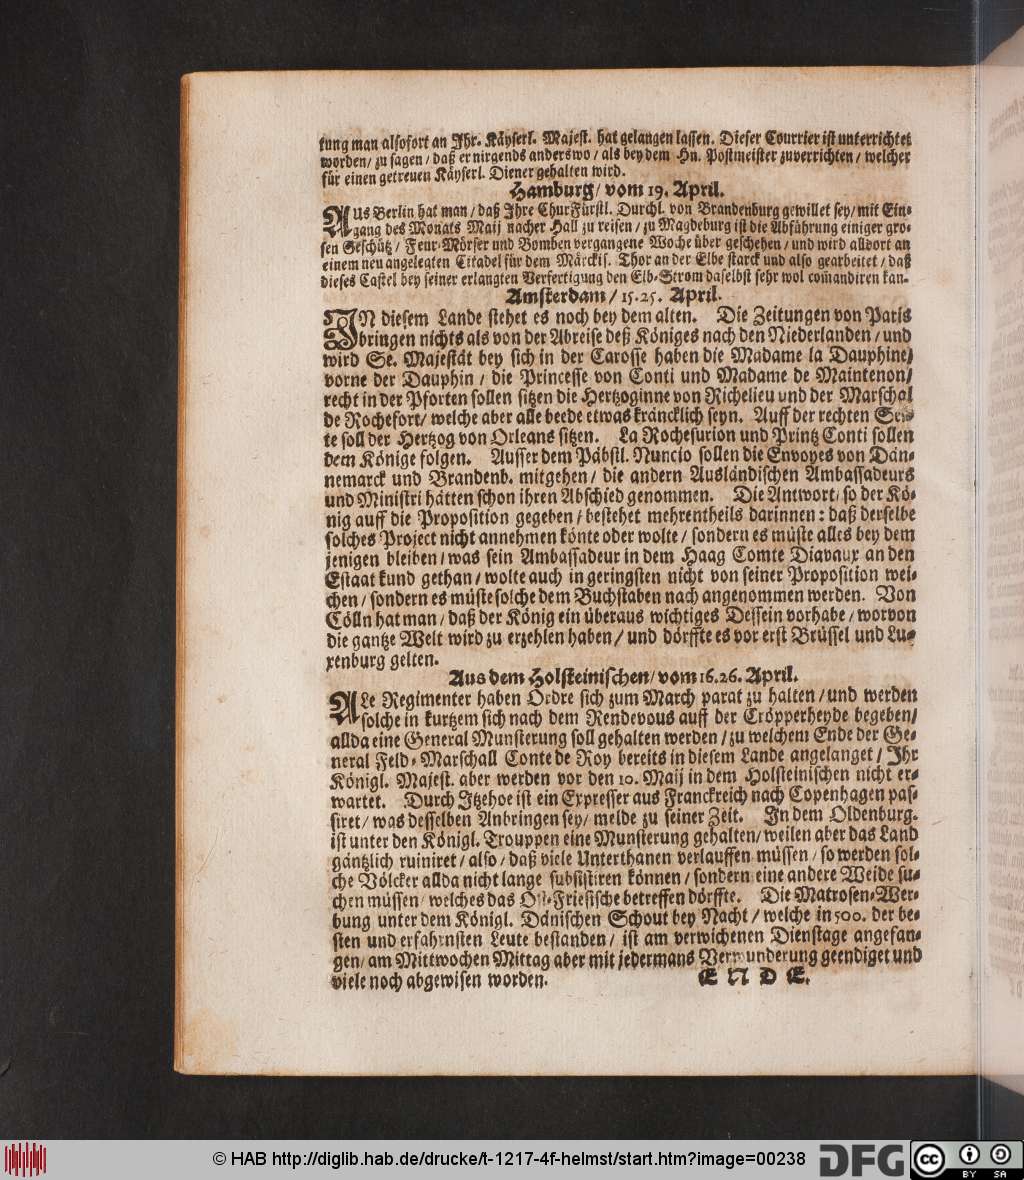 kung man alsofort an Ihr. Käyserl. Majest. hat gelangen lassen. Dieser Courrier ist unterrichtet
worden / zu sagen / daß er nirgends anderswo / als bey dem Hn. Postmeister zuverrichten / welcher
für einen getreuen Käyserl. Diener gehalten wird.
Hamburg / vom 19. April.
AUs Berlin hat man / daß Ihre ChurFürstl. Durchl. von Brandenburg gewillet sey / mit Ein-
gang des Monats Maij nacher Hall zu reisen / zu Magdeburg ist die Abführung einiger gros-
sen Geschütz / Feur-Mörser und Bomben vergangene Woche über geschehen / und wird alldort an
einem neu angelegten Citadel für dem Märckis. Thor an der Elbe starck und also gearbeitet / daß
dieses Castel bey seiner erlangten Verfertigung den Elb-Strom daselbst sehr wol com̄andiren kan.
Amsterdam / 15. 25. April.
IN diesem Lande stehet es noch bey dem alten. Die Zeitungen von Paris
bringen nichts als von der Abreise deß Königes nach den Niederlanden / und
wird Se. Majestät bey sich in der Carosse haben die Madame la Dauphine /
vorne der Dauphin / die Princesse von Conti und Madame de Maintenon /
recht in der Pforten sollen sitzen die Hertzoginne von Richelieu und der Marschal
de Rochefort / welche aber alle beede etwas kräncklich seyn. Auff der rechten Sei-
te soll der Hertzog von Orleans sitzen. La Rochesurion und Printz Conti sollen
dem Könige folgen. Ausser dem Päbstl. Nuncio sollen die Envoyes von Dän-
nemarck und Brandenb. mitgehen / die andern Ausländischen Ambassadeurs
und Ministri hätten schon ihren Abschied genommen. Die Antwort / so der Kö-
nig auff die Proposition gegeben / bestehet mehrentheils darinnen: daß derselbe
solches Project nicht annehmen könte oder wolte / sondern es müste alles bey dem
jenigen bleiben / was sein Ambassadeur in dem Haag Comte Diavaux an den
Estaat kund gethan / wolte auch in geringsten nicht von seiner Proposition wei-
chen / sondern es müste solche dem Buchstaben nach angenommen werden. Von
Cölln hat man / daß der König ein überaus wichtiges Dessein vorhabe / worvon
die gantze Welt wird zu erzehlen haben / und dörffte es vor erst Brüssel und Lu-
xenburg gelten.
Aus dem Holsteinischen / vom 16. 26. April.
ALe Regimenter haben Ordre sich zum March parat zu halten / und werden
solche in kurtzem sich nach dem Rendevous auff der Cröpperheyde begeben /
allda eine General Munsterung soll gehalten werden / zu welchem Ende der Ge-
neral Feld-Marschall Conte de Roy bereits in diesem Lande angelanget / Ihr
Königl. Majest. aber werden vor den 10. Maij in dem Holsteinischen nicht er-
wartet. Durch Itzehoe ist ein Expresser aus Franckreich nach Copenhagen pas-
siret / was desselben Anbringen sey / melde zu seiner Zeit. In dem Oldenburg.
ist unter den Königl. Trouppen eine Munsterung gehalten / weilen aber das Land
gäntzlich ruiniret / also / daß viele Unterthanen verlauffen müssen / so werden sol-
che Völcker allda nicht lange subsistiren können / sondern eine andere Weide su-
chen müssen / welches das Ost-Friesische betreffen dörffte. Die Matrosen-Wer-
bung unter dem Königl. Dänischen Schout bey Nacht / welche in 500. der be-
sten und erfahrnsten Leute bestanden / ist am verwichenen Dienstage angefan-
gen / am Mittwochen Mittag aber mit jedermans Verwunderung geendiget und
viele noch abgewisen worden. ENDE.
© HAB http://diglib.hab.de/drucke/t-1217-4f-helmst/start.htm?image=00238
DFG
cc BY SA